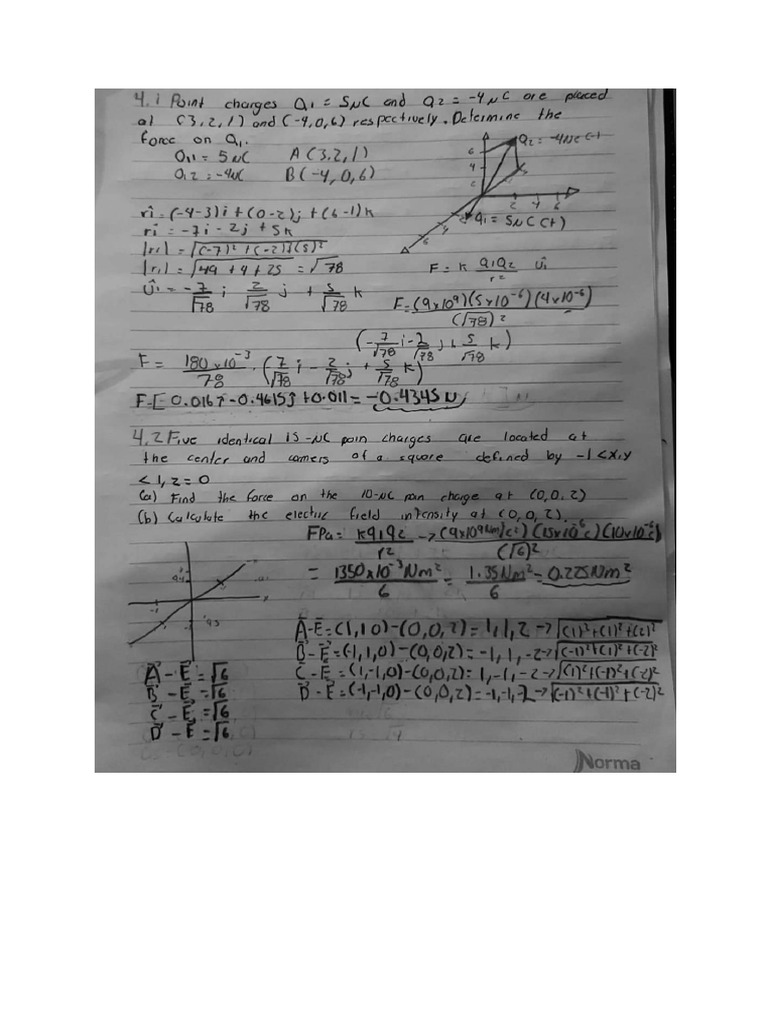 4.1 Point charges Q1 = 5μC and Q2 = -4μC are placed
at (3,2,1) and (-4,0,6) respectively. Determine the
force on Q1.
Q1 = 5μC A(3,2,1)
Q2 = -4μC B(-4,0,6)
6
4
2
Q2 = -4μC (-)
2 4 6
Q1 = 5μC (+)
4
6
r̂1 = (-4-3)i + (0-2)j + (6-1)k
r1 = -7i - 2j + 5k
|r1| = √(-7)² + (-2)²(5)²
|r1| = √49 + 4 + 25 = √78
F = k Q1Q2/r² û1
û1 = -7/√78 i 2/√78 j + 5/√78 k
F = (9x10⁹)(5x10⁻⁶)(4x10⁻⁶)/(√78)²
(-7/√78 i - 2/√78 j + 5/√78 k)
F = 180x10⁻³/78 . (7/√78 i - 2/√78 j + 5/√78 k)
F = [-0.016i - 0.4615j + 0.011 = -0.4345 N
4.2 Five identical 15-μC poin charges are located at
the center and corners of a square defined by -1 < x,y
< 1, z = 0
(a) Find the force on the 10-μC poin charge at (0,0,2)
(b) Calculate the electric field intensity at (0,0,2).
FPa = kq1q2/r² → (9x10⁹Nm²/c²)(15x10⁻⁶c)(10x10⁻⁶c)/(√6)²
= 1350x10⁻³Nm²/6 = 1.35Nm²/6 = 0.225Nm²
A - E = (1,1,0)-(0,0,2) = 1,1,2 → √(1)²+(1)²+(2)²
B - E = (-1,1,0)-(0,0,2) = -1,1,-2 → √(-1)²+(1)²+(-2)²
C - E = (1,-1,0)-(0,0,2) = 1,-1,-2 → √(1)²+(-1)²+(-2)²
D - E = (-1,-1,0)-(0,0,2) = -1,-1,2 → √(-1)²+(-1)²+(-2)²
A - E = √6
B - E = √6
C - E = √6
D - E = √6
Norma